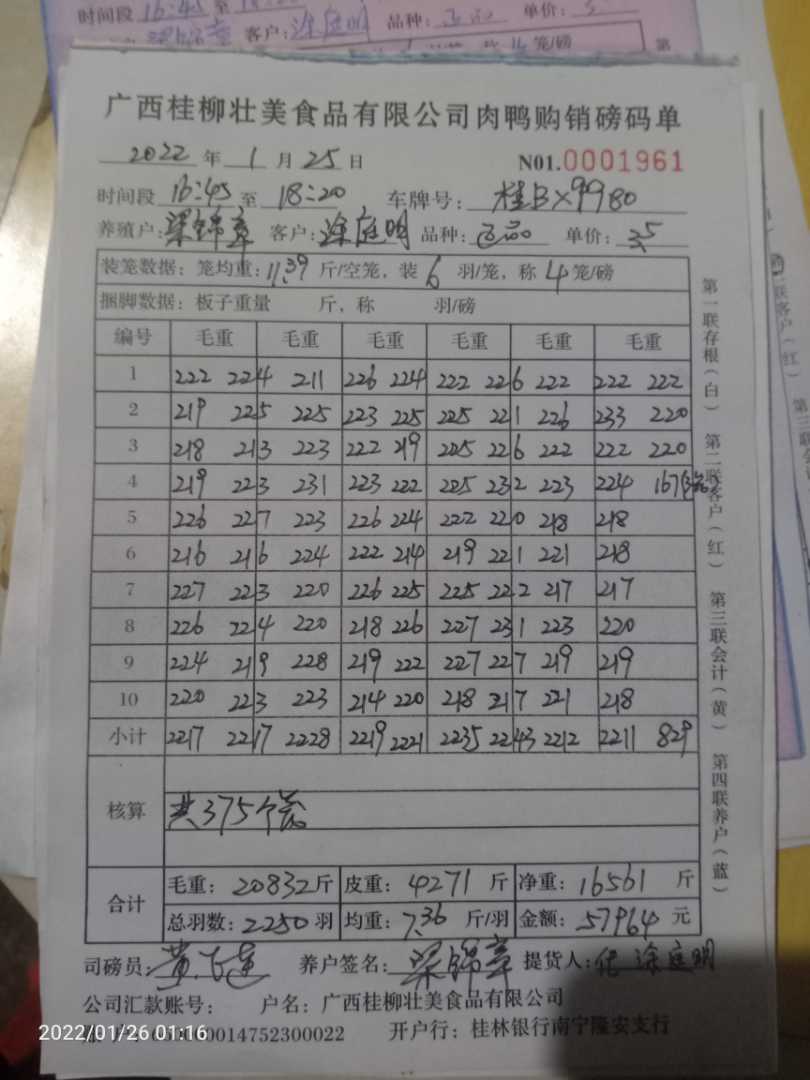 时间段 16:45 至
品种: 正品 单价:
客户: 涂庭明
笼/磅
广西桂柳壮美食品有限公司肉鸭购销磅码单
2022 年 1 月 25 日 N01.0001961
时间段 16:45 至 18:20 车牌号: 桂BX9980
养殖户: 梁锦章 客户: 涂庭明 品种: 正品 单价: 3.5
装笼数据: 笼均重: 11.39 斤/空笼, 装 6 羽/笼, 称 4 笼/磅
捆脚数据: 板子重量 斤, 称 羽/磅
编号 毛重 毛重 毛重 毛重 毛重 毛重
1 222 224 211 226 224 222 226 222 222 222
2 219 225 225 223 225 225 221 226 233 220
3 218 213 223 222 219 225 226 222 222 220
4 219 223 231 223 222 225 232 223 224 167
5 226 227 223 226 224 222 220 218 218
6 216 216 224 222 214 219 221 221 218
7 227 223 220 226 225 225 222 217 217
8 226 224 220 218 226 227 231 223 220
9 224 219 228 219 222 227 227 219 219
10 220 223 223 214 220 218 217 221 218
小计 2217 2217 2228 2219 2221 2235 2243 2212 2211 829
核算 共375个笼
合计 毛重: 20832 斤 皮重: 4271 斤 净重: 16561 斤
总羽数: 2250 羽 均重: 7.36 斤/羽 金额: 57964 元
司磅员: 养户签名: 梁锦章 提货人: 代 涂庭明
公司汇款账号: 户名: 广西桂柳壮美食品有限公司
00014752300022 开户行: 桂林银行南宁隆安支行
2022/01/26 01:16
第一联存根(白) 第二联客户(红) 第三联会计(黄) 第四联养户(蓝)